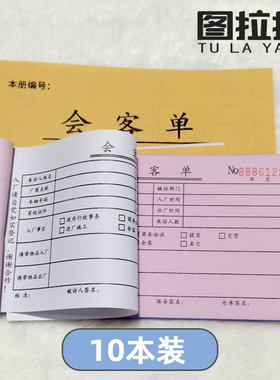 图拉拉
TU LA YA
本册编号:
会客单
会
客单
No 888612
年 月
入厂请自觉如实登记,谢谢合作!
来访人姓名
厂商名称
车辆牌号
有效证件
入厂事宜
□政府行政事务
□进厂施工
□商务
□会客
携带物品入厂
携带物品出厂
核准:
被访人签名:
被访部门
入厂时间
出厂时间
来访人数
商务洽谈
□提货
□交货
会客
□其它
保安签名:
仓库签名:
10本装